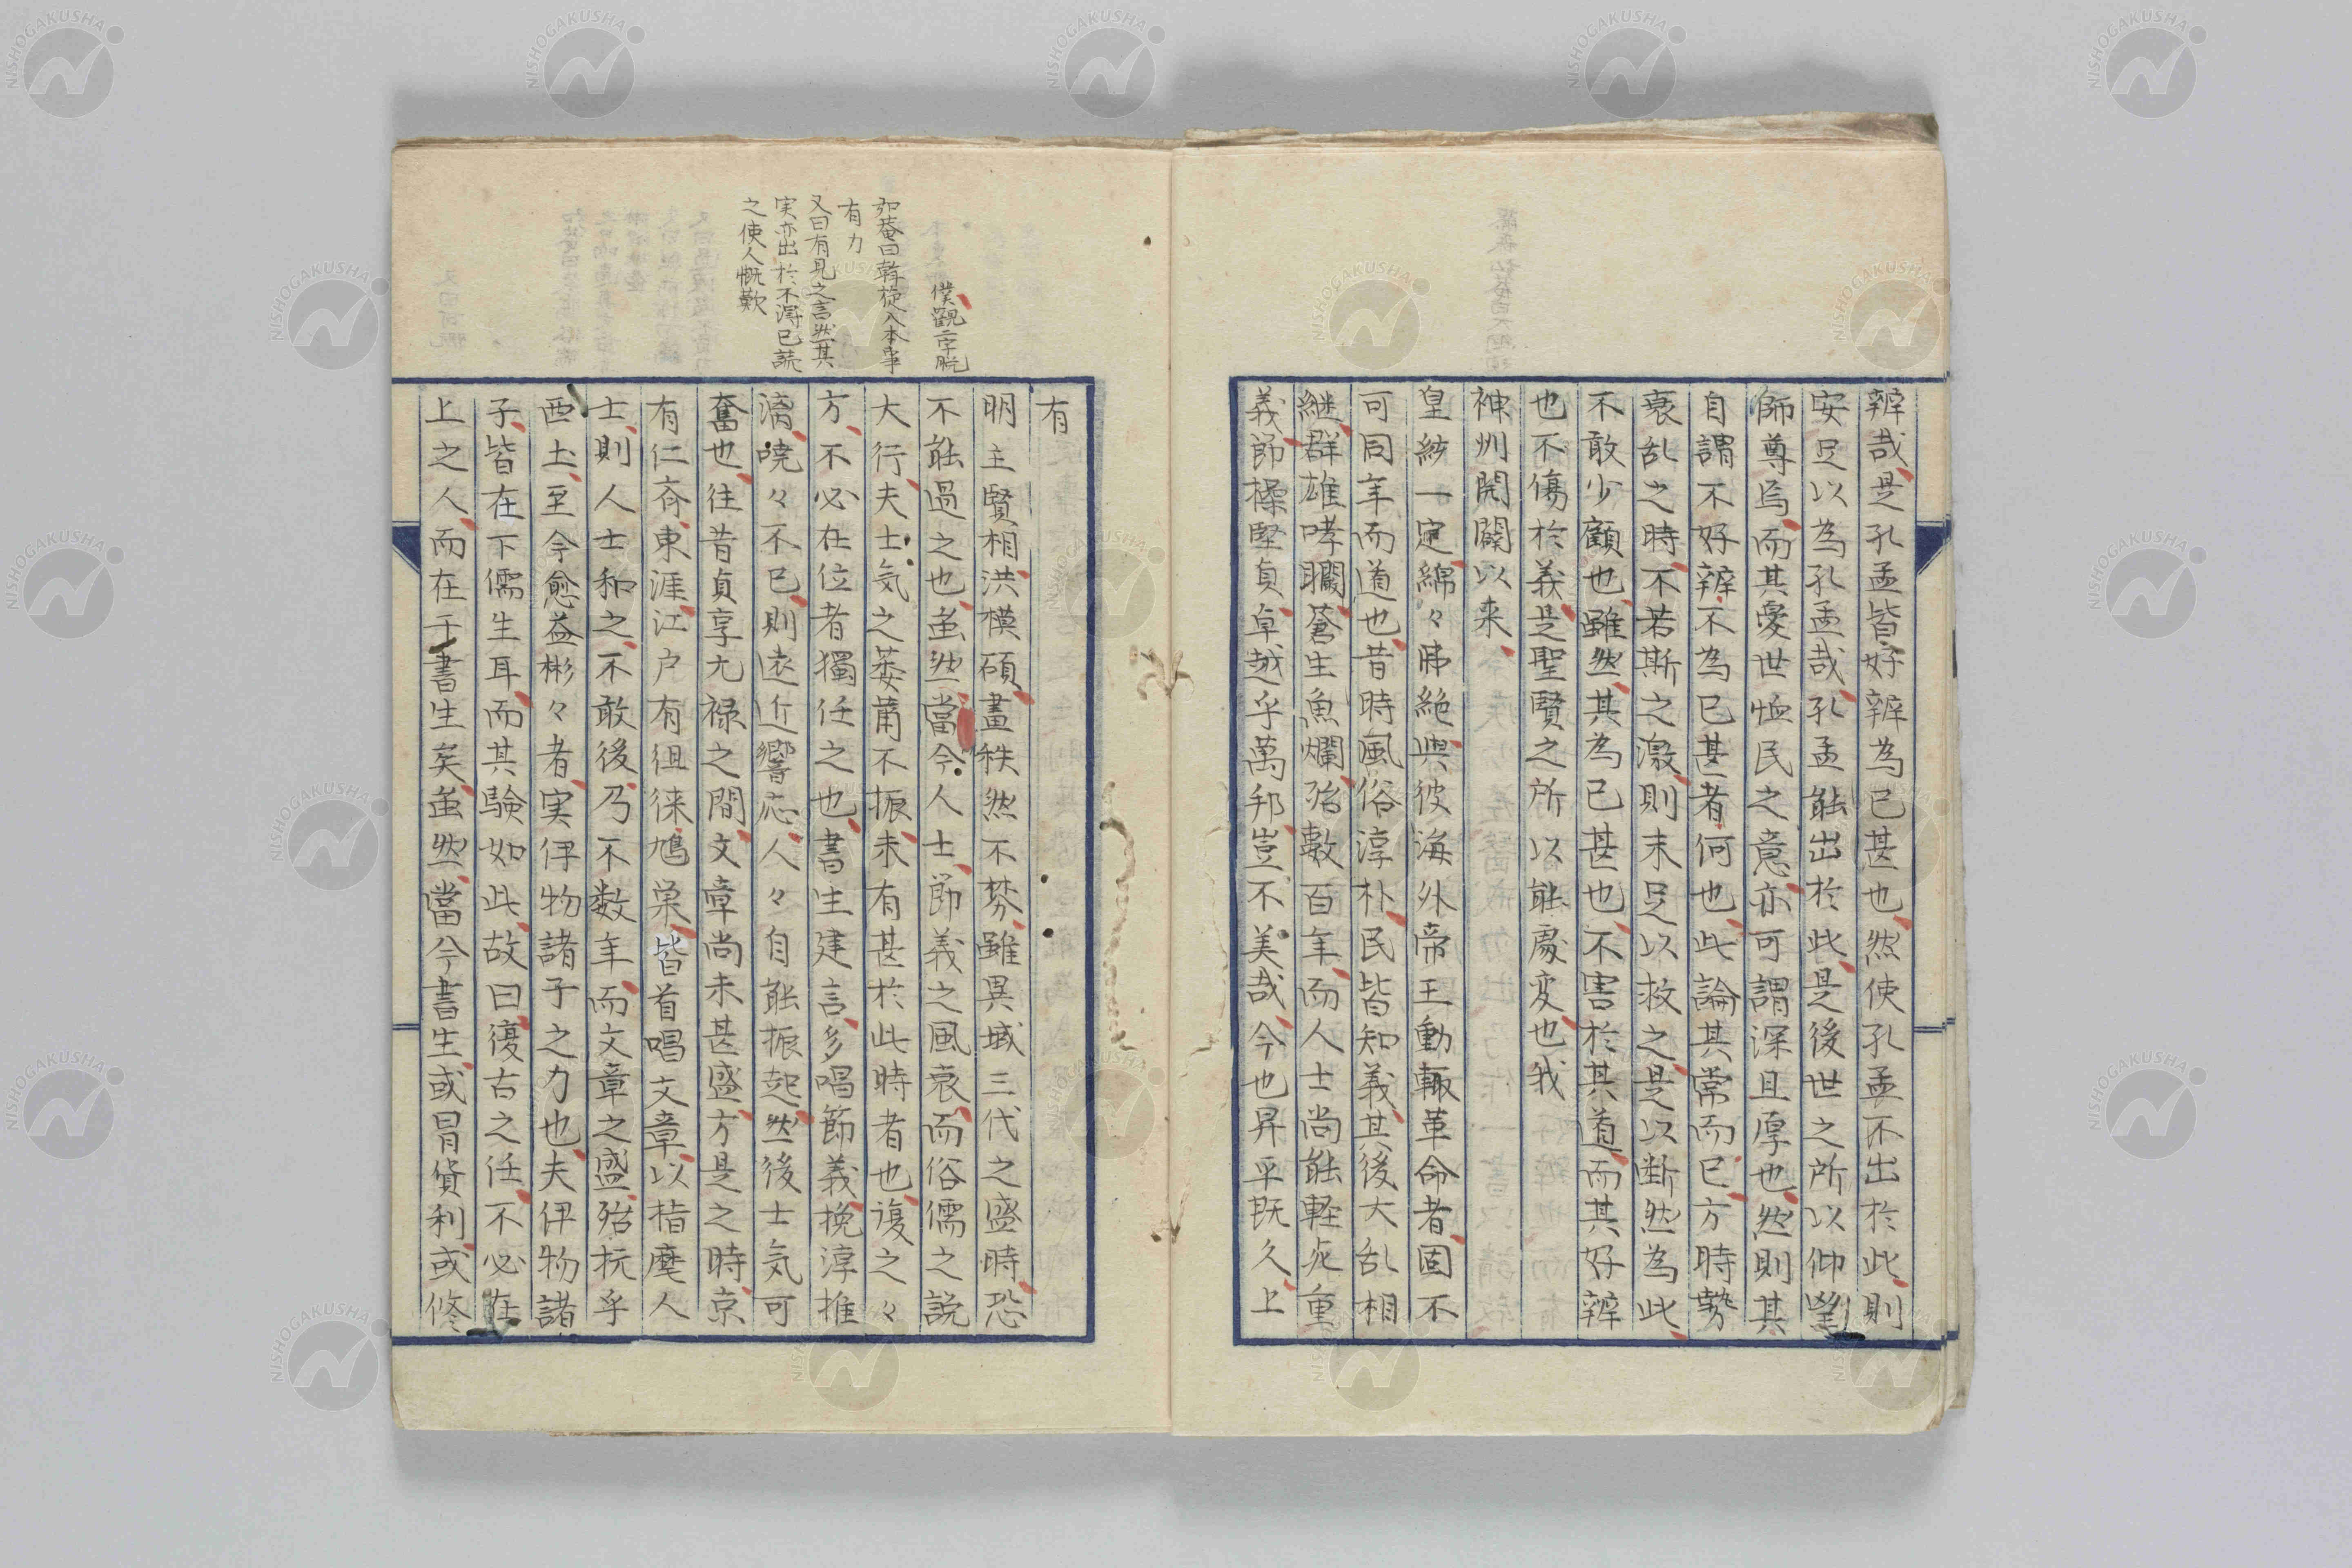 辨哉是孔孟皆好辨為已甚也然使孔孟不出於此則
安足以為孔孟哉孔孟能出於此是後世之所以仰
師尊焉而其憂世恤民之意亦可謂深且厚也然則其
自謂不好辨不為已甚者何也此論其常而已方時勢
衰乱之時不若斯之激則末足以救之是以断然為此
不敢少顧也雖然其為已甚也不害於其道而其好辨
也不傷於義是聖賢之所以能處変也我
神州開闢以来
皇統一定綿々不絶與彼海外帝王動輙革命者固不
可同年而道也昔時風俗淳朴民皆知義其後大乱相
継群雄哮闞蒼生魚爛殆數百年而人士尚能軽死重
義節操堅貞卓越乎萬邦豈不美哉今也昇平既久上
有
明主賢相洪模碩畫秩然不棼雖異域三代之盛時恐
不能過之也虽然當今人士節義之風衰而俗儒之説
大行夫士気之萎薾不振未有甚於此時者也復之々
方不必在位者獨任之也書生建言多唱節義挽淳推
漓嘵々不已則遠近響応人々自能振起然後士気可
奮也往昔貞享元禄之間文章尚未甚盛方是之時京
有仁斎東涯江戸有徂徠鳩巣皆首唱文章以指麾人
士則人士和之不敢後乃不数年而文章之盛殆抗乎
西土至今愈益彬々者実伊物諸子之力也夫伊物諸
子皆在下儒生耳而其験如此故曰復古之任不必在
上之人而在于書生矣虽然當今書生或冐貨利或修
僕觀二字脱
如菴曰斡旋入本事
有力
又曰有見之言然其
実亦出於不得已読
之使人慨歎
NISHOGAKUSHA